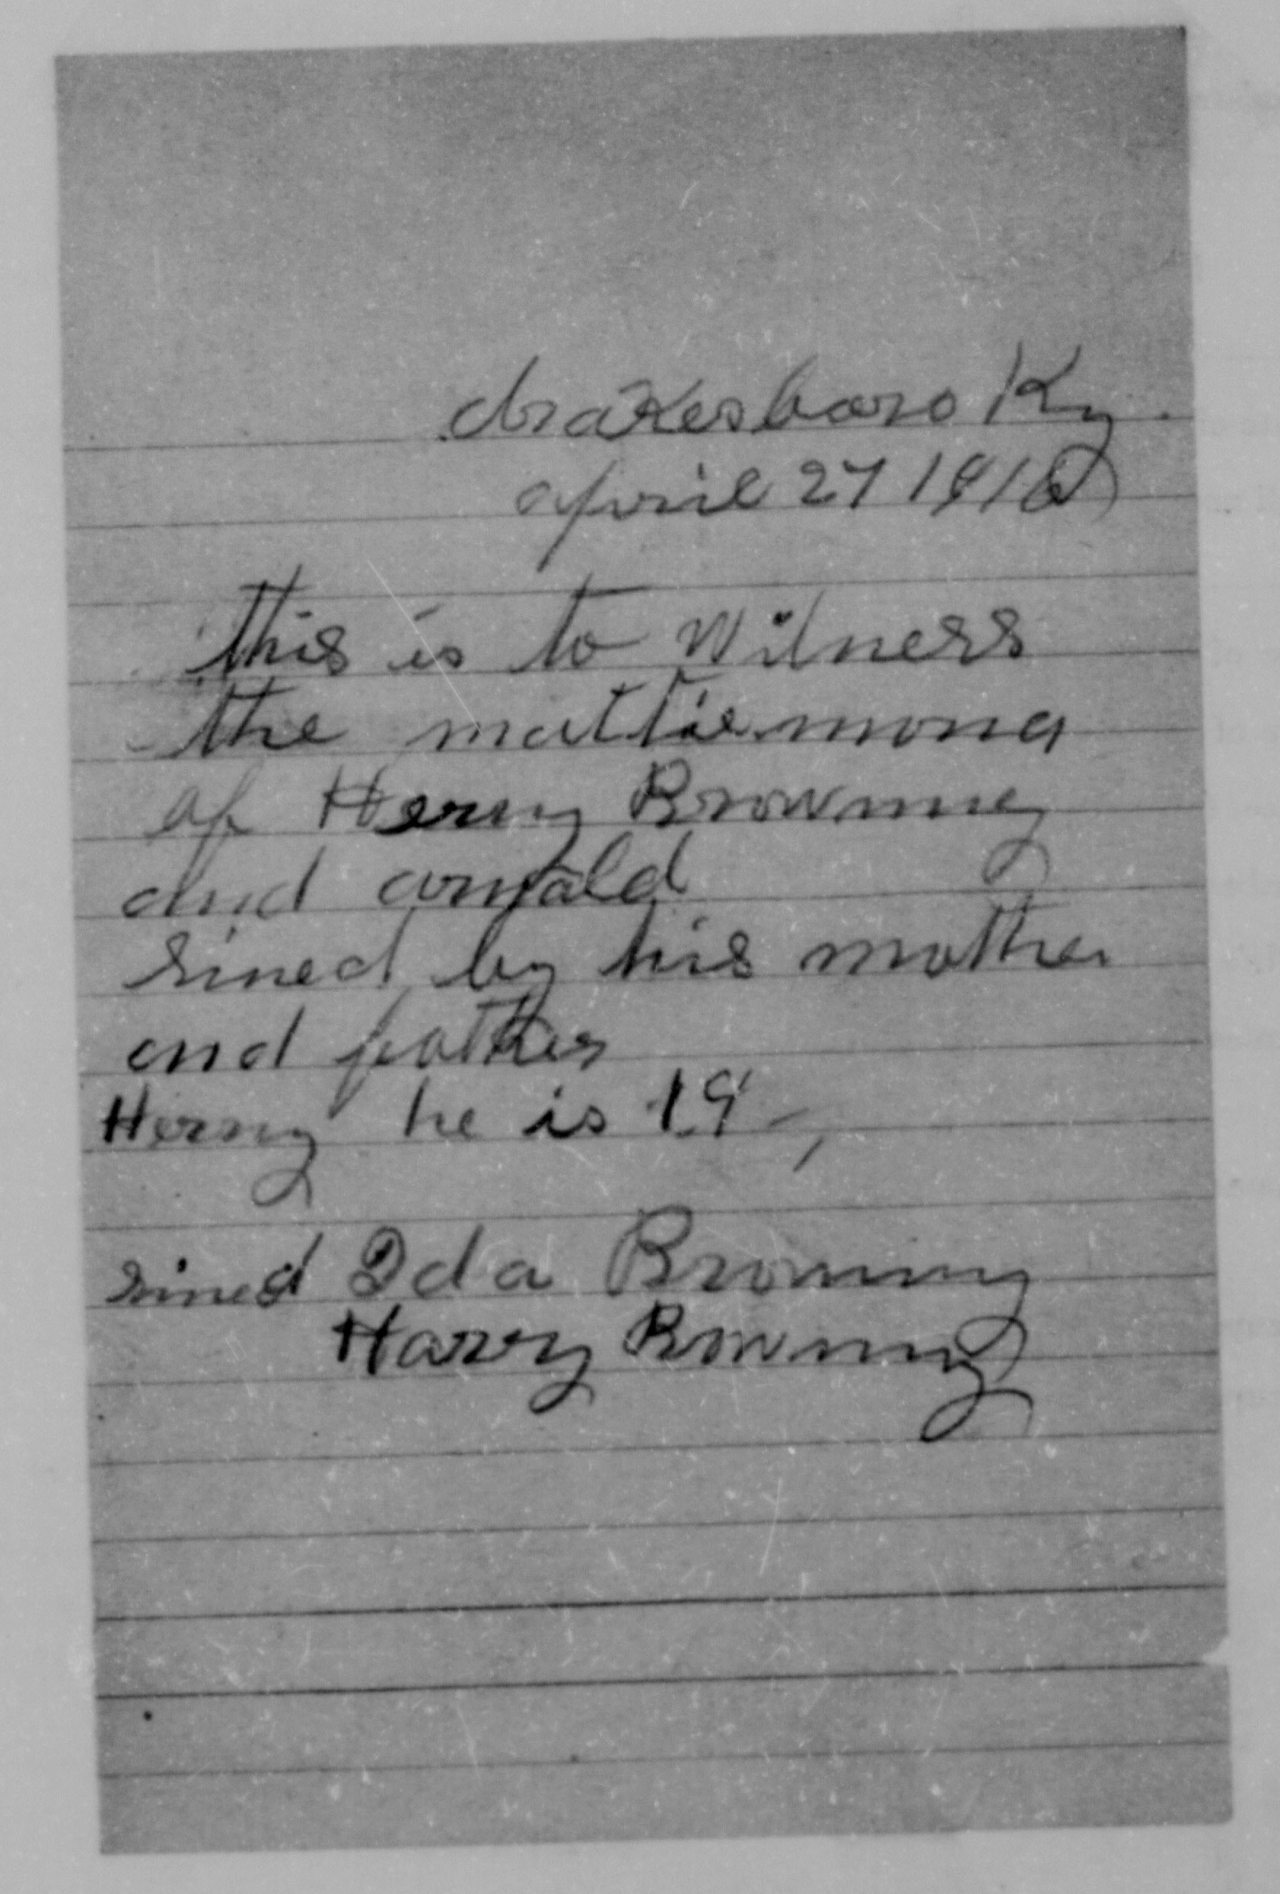 drakesboro Ky.
april 27 1916
this is to Witness
the mattiemona
of Herny Browning
and arnald
sined by his mother
and father
Herny he is 19
sined Ida Browning
Harry Browning